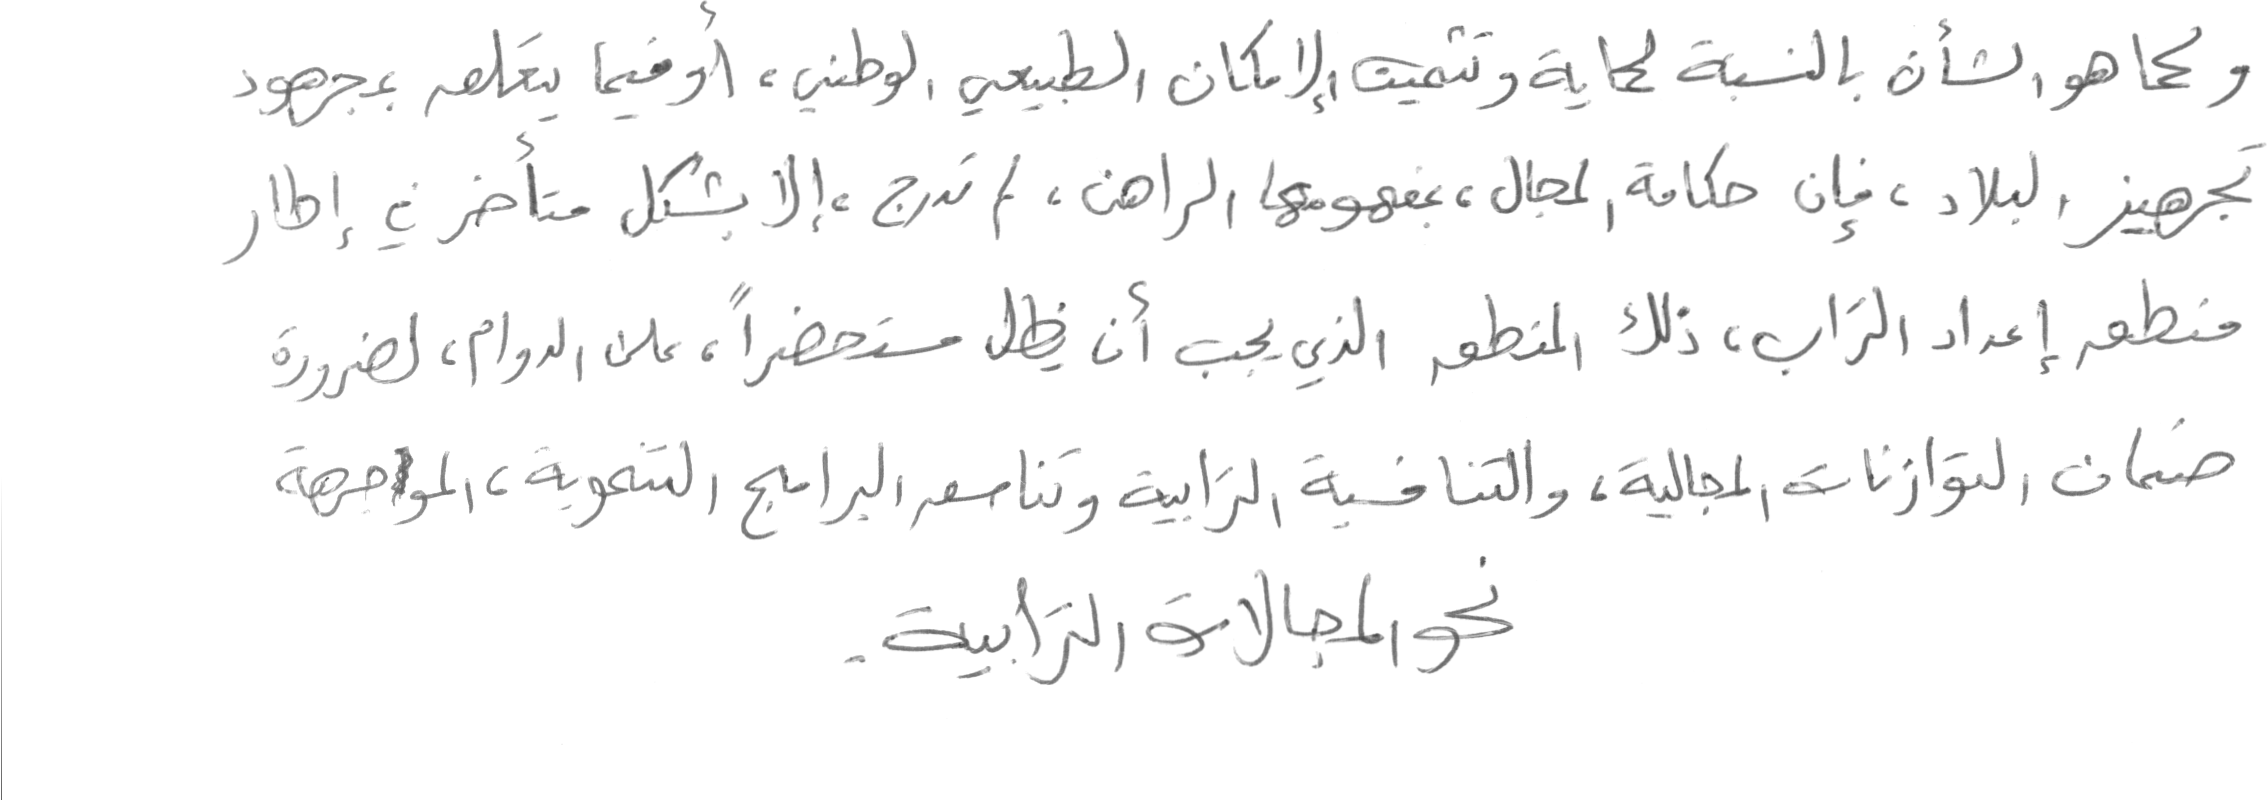 وكما هو الشأن بالنسبة لحماية وتثمين الإمكان الطبيعي الوطني، أو فيما يتعلق بمجهود
تجهيز البلاد، فإن حكامة المجال، بمفهومها الراهن، لم تدرج، إلا بشكل متأخر في إطار
منطق إعداد التراب، ذلك المنطق الذي يجب أن يظل مستحضراً، على الدوام، لضرورة
ضمان التوازنات المجالية، والتنافسية الترابية وتناسق البرامج التنموية، الموجهة
نحو المجالات الترابية.